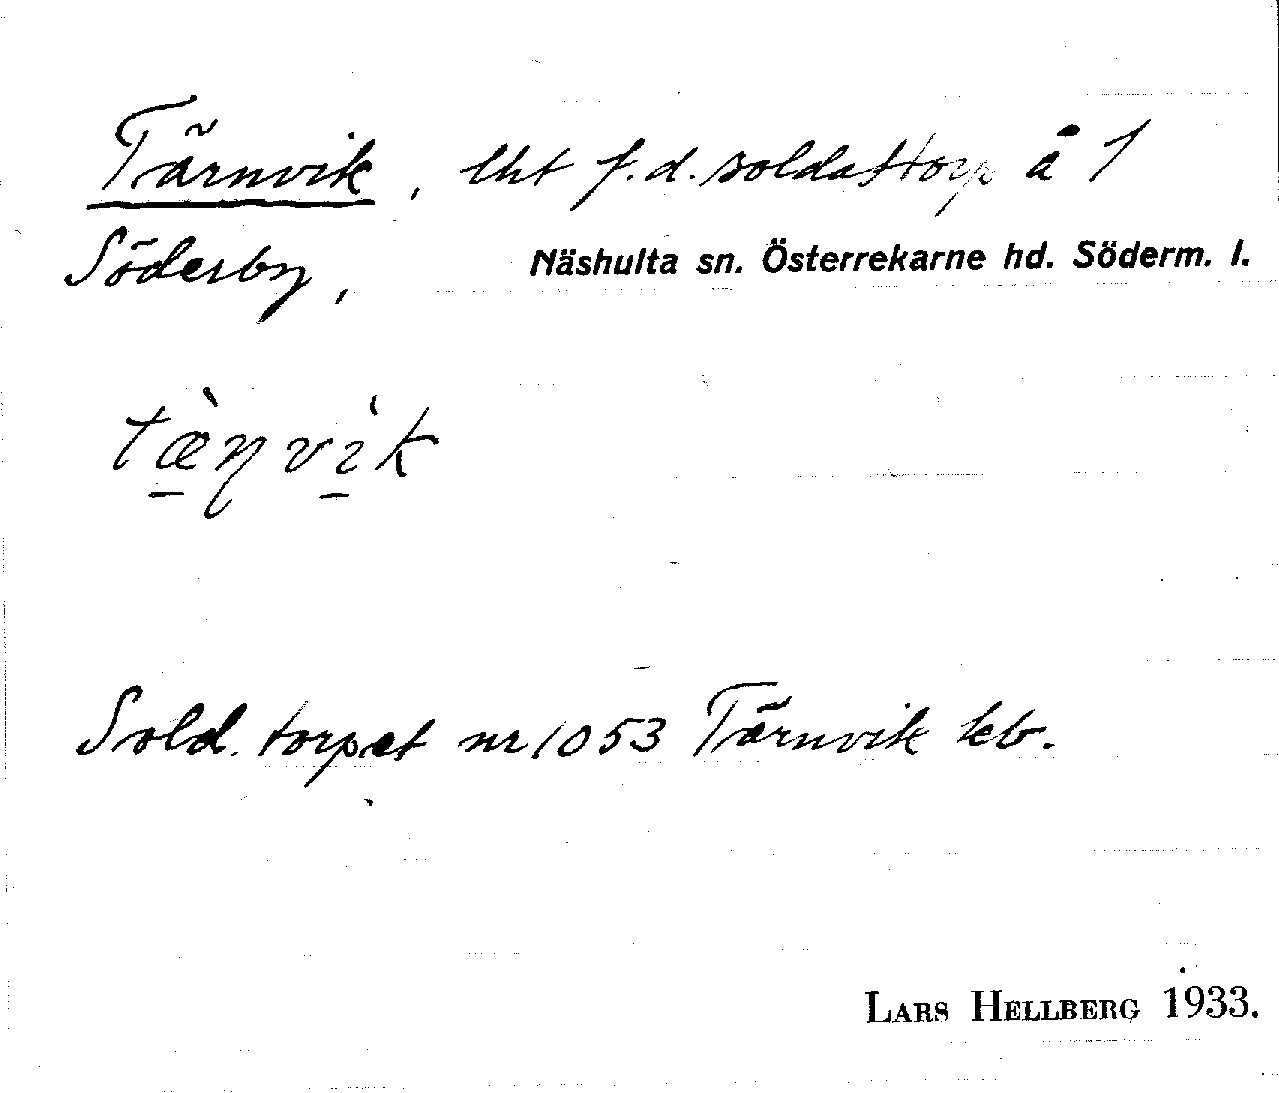 Tärnvik, lht f.d. soldattorp å 1
Söderby, Näshulta sn. Österrekarne hd. Söderm. l.
tæ̠̀ɳvì̠k
Sold. torpet nr 1053 Tärnvik kb.
LARS HELLBERG 1933.